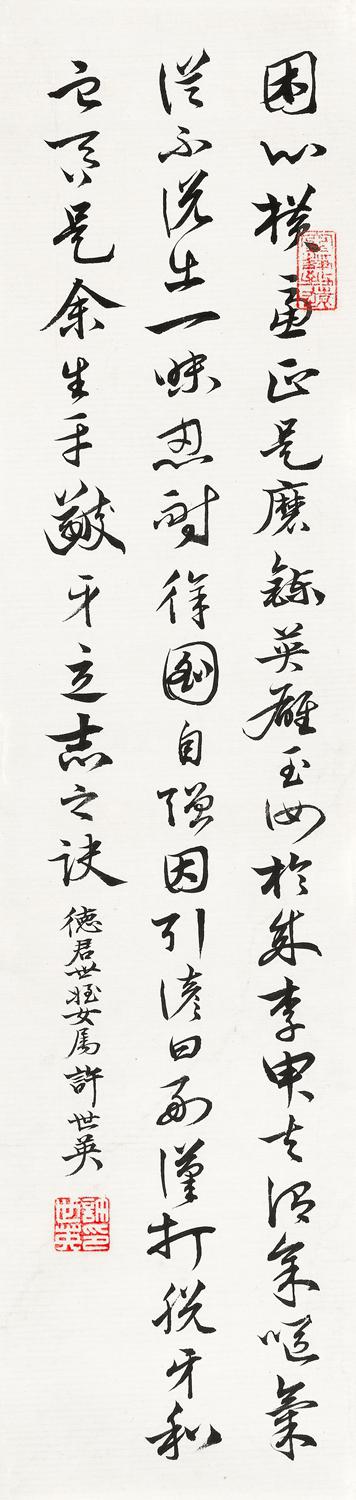 困心橫慮正是磨鍊英雄玉汝於成李申夫謂余嘔氣
從不說出一味忍耐徐圖自強因引諺曰好漢打脫牙和
血吞是余生平齩牙立志之訣 德君世姪女属 許世英
許世英印